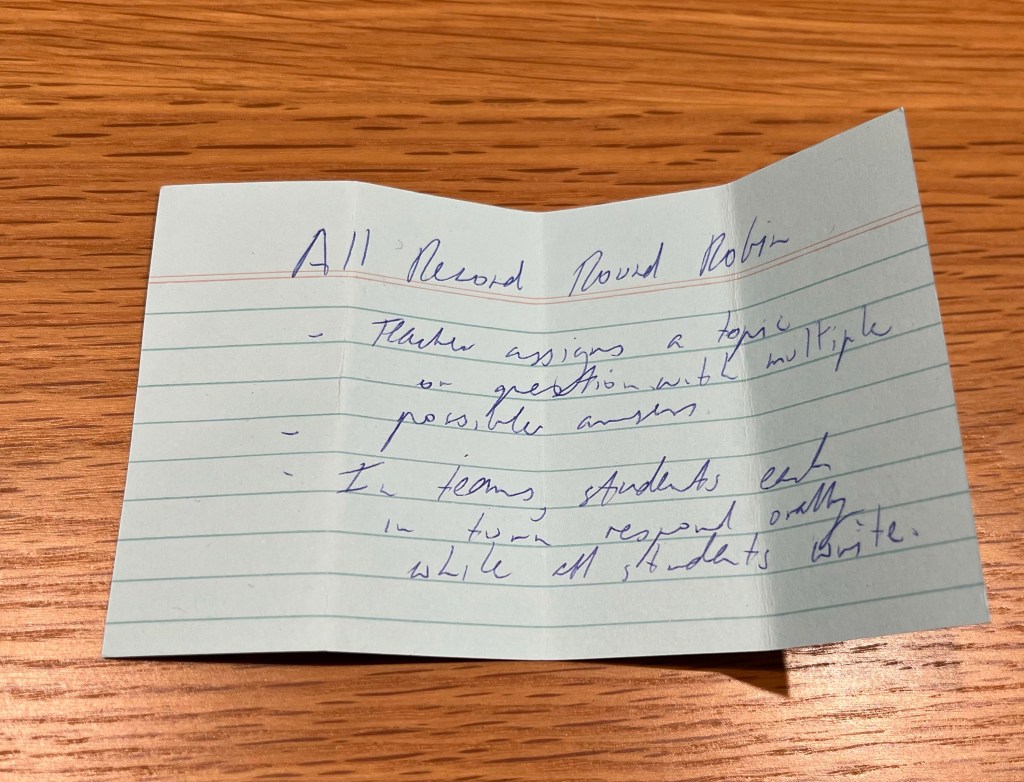 All Record Round Robin
- Teacher assigns a topic
or question with multiple
possible answers.
-
- In teams, students each
in turn respond orally
while all students write.